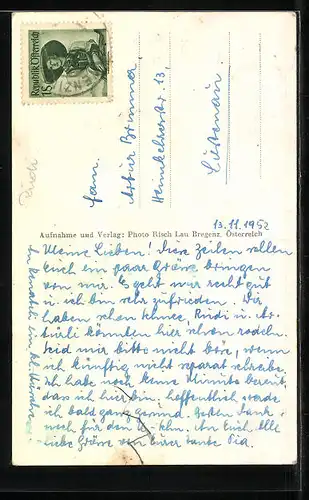 Republik Österreich
1S
Fam.
Artur Brunner
Heinkelsstr. 13,
Lustenau
Aufnahme und Verlag: Photo Risch Lau Bregenz, Österreich
13.11.1952
Meine Lieben! Diese Zeilen sollen
Euch ein paar Grüße bringen
von mir. Es geht mir recht gut
u. ich bin sehr zufrieden. Wir
haben schon Schnee, Rudi u. Ar-
türli könnten hier schon rodeln.
Seid mir bitte nicht böse, wenn
ich künftig nicht separat schreibe.
Ich habe noch keine Minute bereut,
daß ich hier bin. Hoffentlich werde
ich bald ganz gesund. Besten Dank
noch für den An Euch alle
liebe Grüße von Eurer Tante Pia.
ein kl.